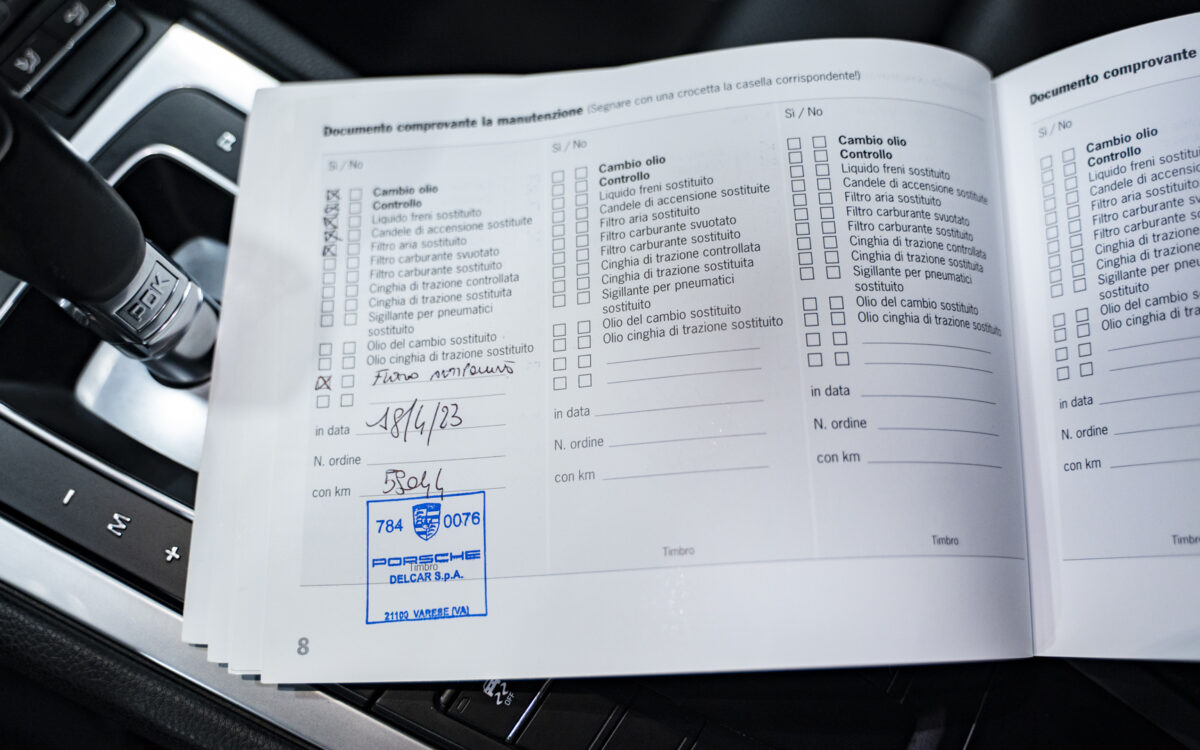 Documento comprovante la manutenzione (Segnare con una crocetta la casella corrispondente!)
Sì / No
Cambio olio
Controllo
Liquido freni sostituito
Candele di accensione sostituite
Filtro aria sostituito
Filtro carburante svuotato
Filtro carburante sostituito
Cinghia di trazione controllata
Cinghia di trazione sostituita
Sigillante per pneumatici
sostituito
Olio del cambio sostituito
Olio cinghia di trazione sostituito
Filtro antipolline
in data 18/4/23
N. ordine
con km 59044
784 0076
PORSCHE
Timbro
DELCAR S.p.A.
21100 VARESE (VA)
8
Sì / No
Cambio olio
Controllo
Liquido freni sostituito
Candele di accensione sostituite
Filtro aria sostituito
Filtro carburante svuotato
Filtro carburante sostituito
Cinghia di trazione controllata
Cinghia di trazione sostituita
Sigillante per pneumatici
sostituito
Olio del cambio sostituito
Olio cinghia di trazione sostituito
in data
N. ordine
con km
Timbro
Sì / No
Cambio olio
Controllo
Liquido freni sostituito
Candele di accensione sostituite
Filtro aria sostituito
Filtro carburante svuotato
Filtro carburante sostituito
Cinghia di trazione controllata
Cinghia di trazione sostituita
Sigillante per pneumatici
sostituito
Olio del cambio sostituito
Olio cinghia di trazione sostituito
in data
N. ordine
con km
Timbro
Documento comprovante
Sì / No
Cambio olio
Controllo
Liquido freni sostituito
Candele di accensione
Filtro aria sostituito
Filtro carburante
Filtro carburante
Cinghia di trazione
Cinghia di trazione
Sigillante per
sostituito
Olio del cambio
Olio cinghia di
in data
N. ordine
con km
Timbro
PDK
R
M
+
OFF